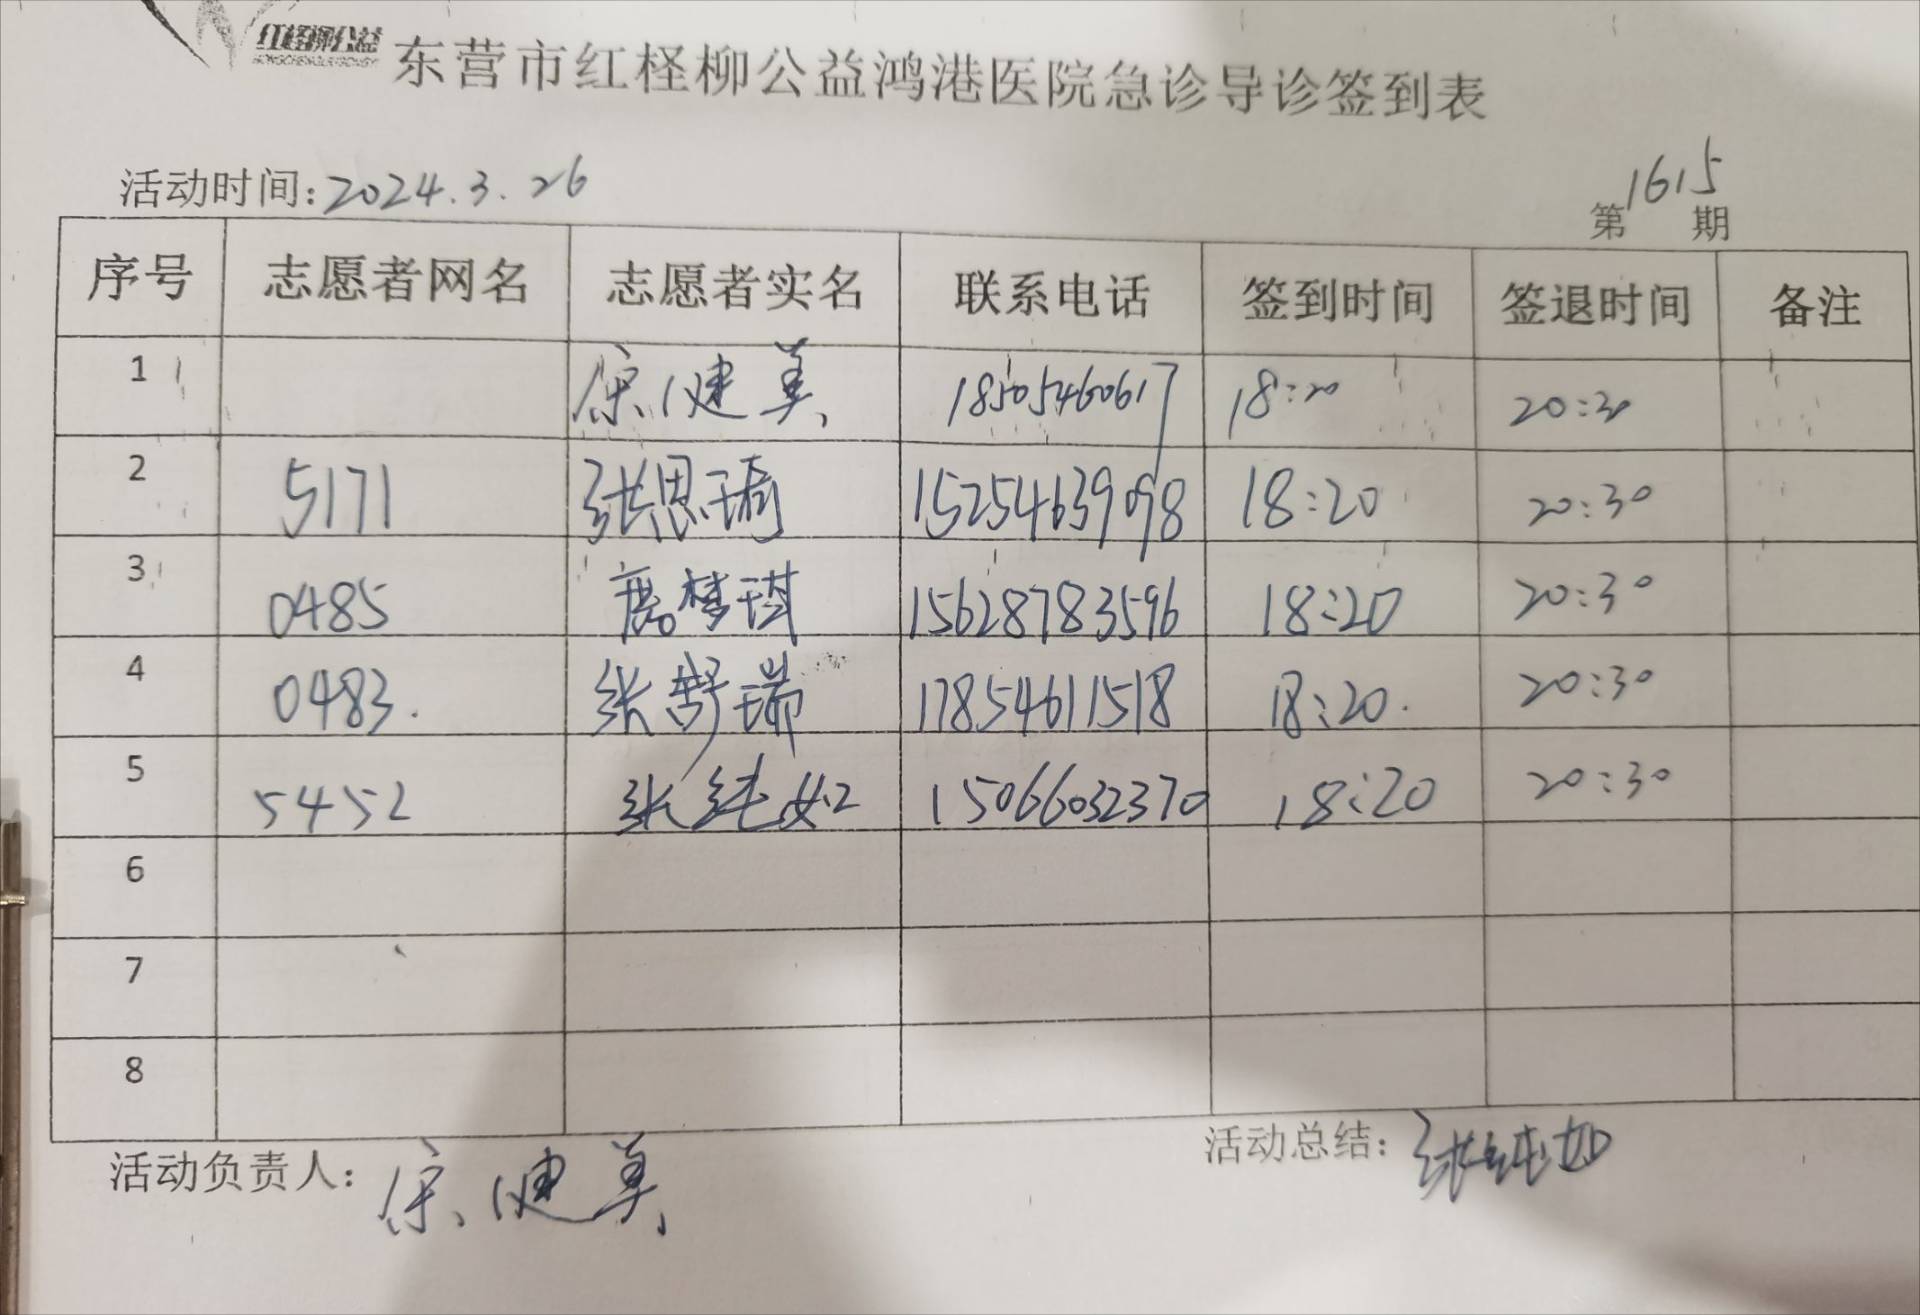 红柽柳公益
东营市红柽柳公益鸿港医院急诊导诊签到表
活动时间:2024.3.26
第1615期
序号 志愿者网名 志愿者实名 联系电话 签到时间 签退时间 备注
1 健美 18505460617 18:20 20:30
2 5171 张思琦 15254639098 18:20 20:30
3 0485 梦琪 15628783596 18:20 20:30
4 0483. 张舒瑞 17854611518 18:20. 20:30
5 5452 张纯如 15066032370 18:20 20:30
6
7
8
活动负责人: 健美
活动总结: 张纯如